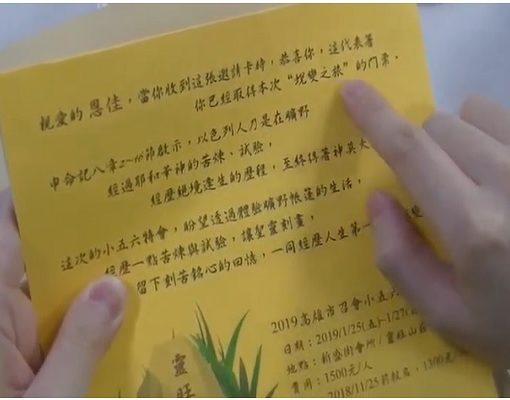 親愛的 恩佳，當你收到這張邀請卡時，恭喜你，這代表著
你已經取得本次“蛻變之旅”的門票。
申命記八章2~16節啟示，以色列人乃是在曠野
經過耶和華神的苦煉、試驗，
經歷絕境逢生的歷程，至終得著神莫大
這次的小五六特會，盼望透過體驗曠野帳蓬的生活，
經歷一點苦煉與試驗，讓聖靈刻畫，
留下刻苦銘心的回憶，一同經歷人生第一 變
2019高雄市召會小五六
日期：2019/1/25(五)~1/27(
地點：新盛街會所/靈旺山莊
費用：1500元/人
2018/11/25前報名，1300元
靈
旺